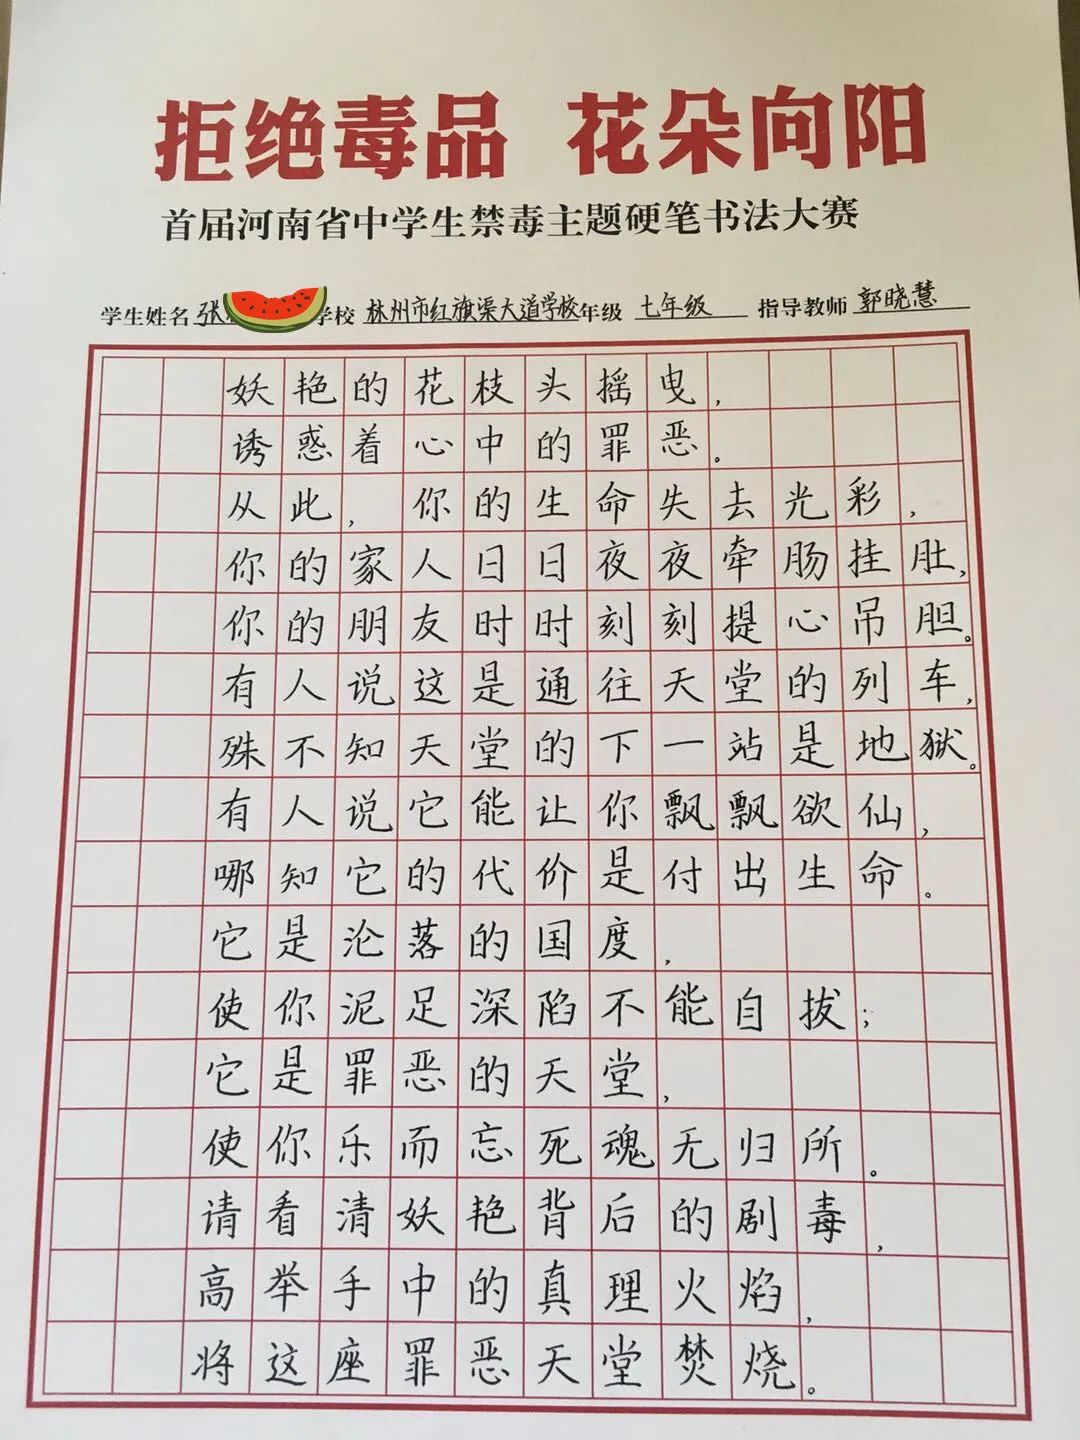 拒绝毒品 花朵向阳
首届河南省中学生禁毒主题硬笔书法大赛
学生姓名 张 学校 林州市红旗渠大道学校 年级 七年级 指导教师 郭晓慧
妖艳的花枝头摇曳，
诱惑着心中的罪恶。
从此，你的生命失去光彩，
你的家人日日夜夜牵肠挂肚，
你的朋友时时刻刻提心吊胆。
有人说这是通往天堂的列车，
殊不知天堂的下一站是地狱。
有人说它能让你飘飘欲仙，
哪知它的代价是付出生命。
它是沦落的国度，
使你泥足深陷不能自拔；
它是罪恶的天堂，
使你乐而忘死魂无归所。
请看清妖艳背后的剧毒，
高举手中的真理火焰，
将这座罪恶天堂焚烧。